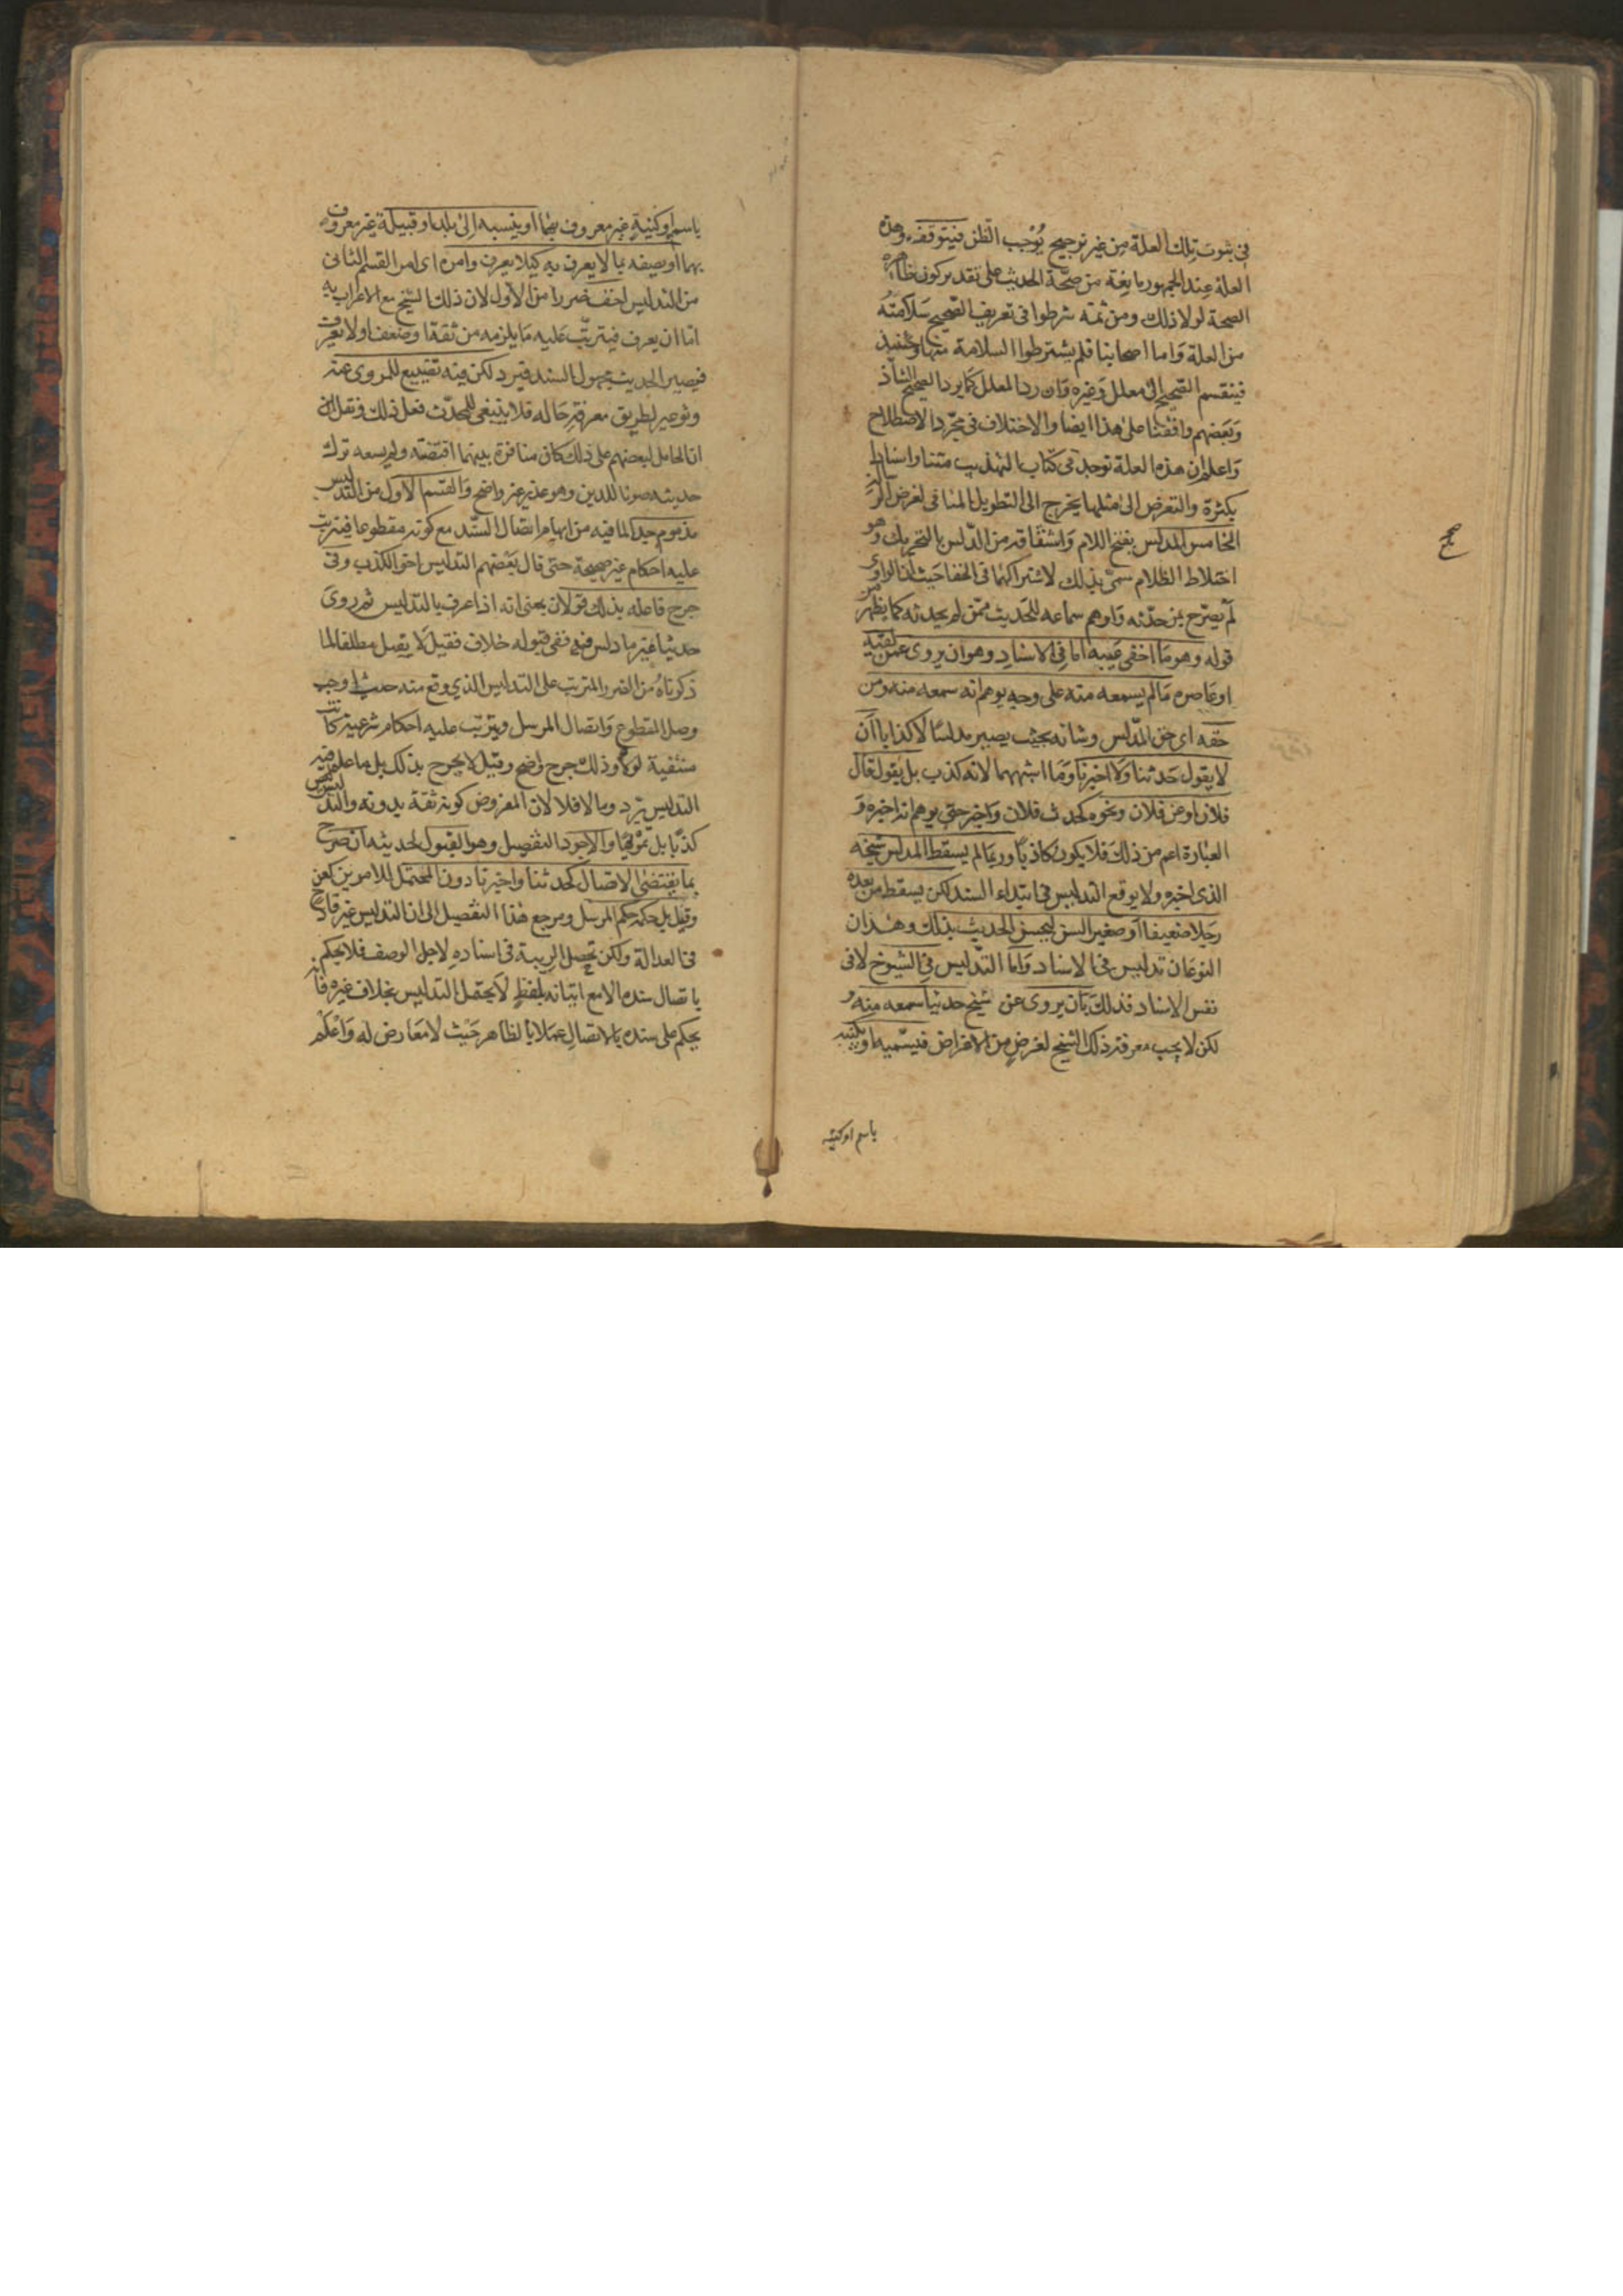 في ثبوت تلك العلة من غير ترجيح يُوجب الظن فيتوقف وهذه
العلة عند الجمهور مانعة من صحّة الحديث على تقدير كون ظاهره
الصحة لولا ذلك ومن ثمّه شرطوا في تعريف الصحيح سَلامته
من العلة وَاما اصحابنا فلم يشترطوا السلامة منها وحينئذ
فينقسم الصحيح الى معلل وَغيره وَان ردّ المعلل كما يرد الصحيح الشاذ
وَبَعضهم وافقنا على هذا ايضا والاختلاف في مجرّد الاصطلاح
وَاعلم ان هذه العلة توجد في كتاب التهذيب متنا واسنادا
بكثرة والتعرض الى مثلها يخرج الى التطويل المنافى لغرض الرسالة
الخامس المدلّس بفتح اللام وَاشتقاقه من الدّلس بالتحريك وهو
اختلاط الظلام سمّى بذلك لاشتراكهما في الخفا حَيث ان الراوى
لم يصرّح بمن حدّثه وَاوهم سماعه للحَديث ممّن لم يحدثه كما يظهر من
قوله وهو مَا اخفى عَيبه اما في الاسناد وهو ان يروى عمن لقيه
او عَاصره مَا لم يسمعه منه على وجه يوهم انه سمعه منه ومن
حقه اى حق المدّلس وشانه بحيث يصير مدلسًا لا كذابا ان
لا يقول حَدثنا وَلا اخبرنا وَمَا اشبههما لانه كذب بل يَقول قال
فلان او عن فلان ونحوه كحدث فلان وَاخبر حتى يوهم انه اخبره وَ
العبارة اعم من ذلكَ فلا يكون كاذبًا وربمَا لم يسقط المدلس شيخه
الذى اخبره ولا يوقع التدليس في ابتداء السند لكن يسقط من بعده
رجَلا ضعيفا اَو صغير السن ليحسن الحديث بذلك وهذان
النوعَان تدليس في الاسناد وَاما التّدليس في الشيوخ لا في
نفس الاسناد فذلكَ بان يروى عن شيخ حديثا سمعه منه و
لكن لا يحب معرفة ذلك الشيخ لغرضٍ من الاغراض فيسّميه او يكنيه
باسم او كنيته
باسم او كنيةٍ غير معروف بهمَا او ينسبه الى بلد او قبيلة غير معروف
بهما او يصفه بما لا يعرف به كيلا يعرف وامره اى امر القسم الثانى
من التدليس اخف ضررا من الاول لان ذلك الشيخ مع الاغراب به
امّا ان يعرف فيترتّب عَليه مَا يلزمه من ثقة او ضعف او لا يعرف
فيصير الحديث مجهول السند فيرد لكن فيه تضييع للمروى عنه
وتوعير لطريق معرفة حَاله فلا ينبغى للمحدّث فعل ذلك ونقل
ان الحامل لبعضهم على ذلك كان منافرة بينهما اقتضته ولم يسعه ترك
حديثه صونا للدين وهو عذر غير واضح وَالقسم الاول من التدليس
مذموم جدا لما فيه من ايهام اتصال السّند مع كونه مقطوعا فيترتب
عليه احكام غير صحيحة حتى قال بَعضهم التدليس اخو الكذب وفي
جرح فاعله بذلك قولان بمعنى انه اذا عرف بالتدليس ثم روى
حديثا غير ما دلس فيه ففى قبوله خلاف فقيل لا يقبل مطلقا لما
ذكرناهُ من الضرر المترتب على التدليس الذي وقع منه حيث اوجب
وصل المقطوع وَاتصال المرسل ويترتّب عليه احكام شرعية كانت
منتفية لولاه وذلك جرح واضح وقيل لا يجرح بذلك بل ما علم فيه
التدليس يَرد وما لا فلا لان المفروض كونه ثقة بدونه والتدليس ليس
كذبًا بل تمويهًا والاجود التفصيل وهو القبول لحديثه ان صرّح
بما يقتضى الاتصال كحدثنا واخبرنا دون المحتمل للامرين كعن
وقيل بل حكمه حكم المرسل ومرجع هذا التفصيل الى ان التدليس غير قادح
في العدالة ولكن تحصل الريبة في اسناده لاجل الوصف فلا يحكم
باتصال سنده الا مع اتيانه بلفظ لا يَحتمل التدليس بخلاف غيره فانه
يحكم على سنده بالاتصال عملا بالظاهر حَيث لا معَارض له وَاعلم